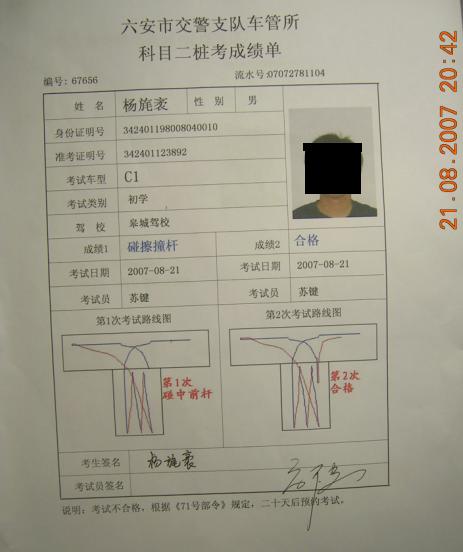 六安市交警支队车管所
科目二桩考成绩单
编号: 67656 流水号:07072781104
姓 名 杨旄袤 性 别 男
身份证明号 342401198008040010
准考证明号 342401123892
考试车型 C1
考试类别 初学
驾 校 皋城驾校
成绩1 碰擦撞杆 成绩2 合格
考试日期 2007-08-21 考试日期 2007-08-21
考试员 苏键 考试员 苏键
第1次考试路线图 第2次考试路线图
第1次 碰中前杆
第2次 合格
考生签名 杨旄袤
考试员签名
说明: 考试不合格, 根据《71号部令》规定, 二十天后预约考试。
21.08.2007 20:42